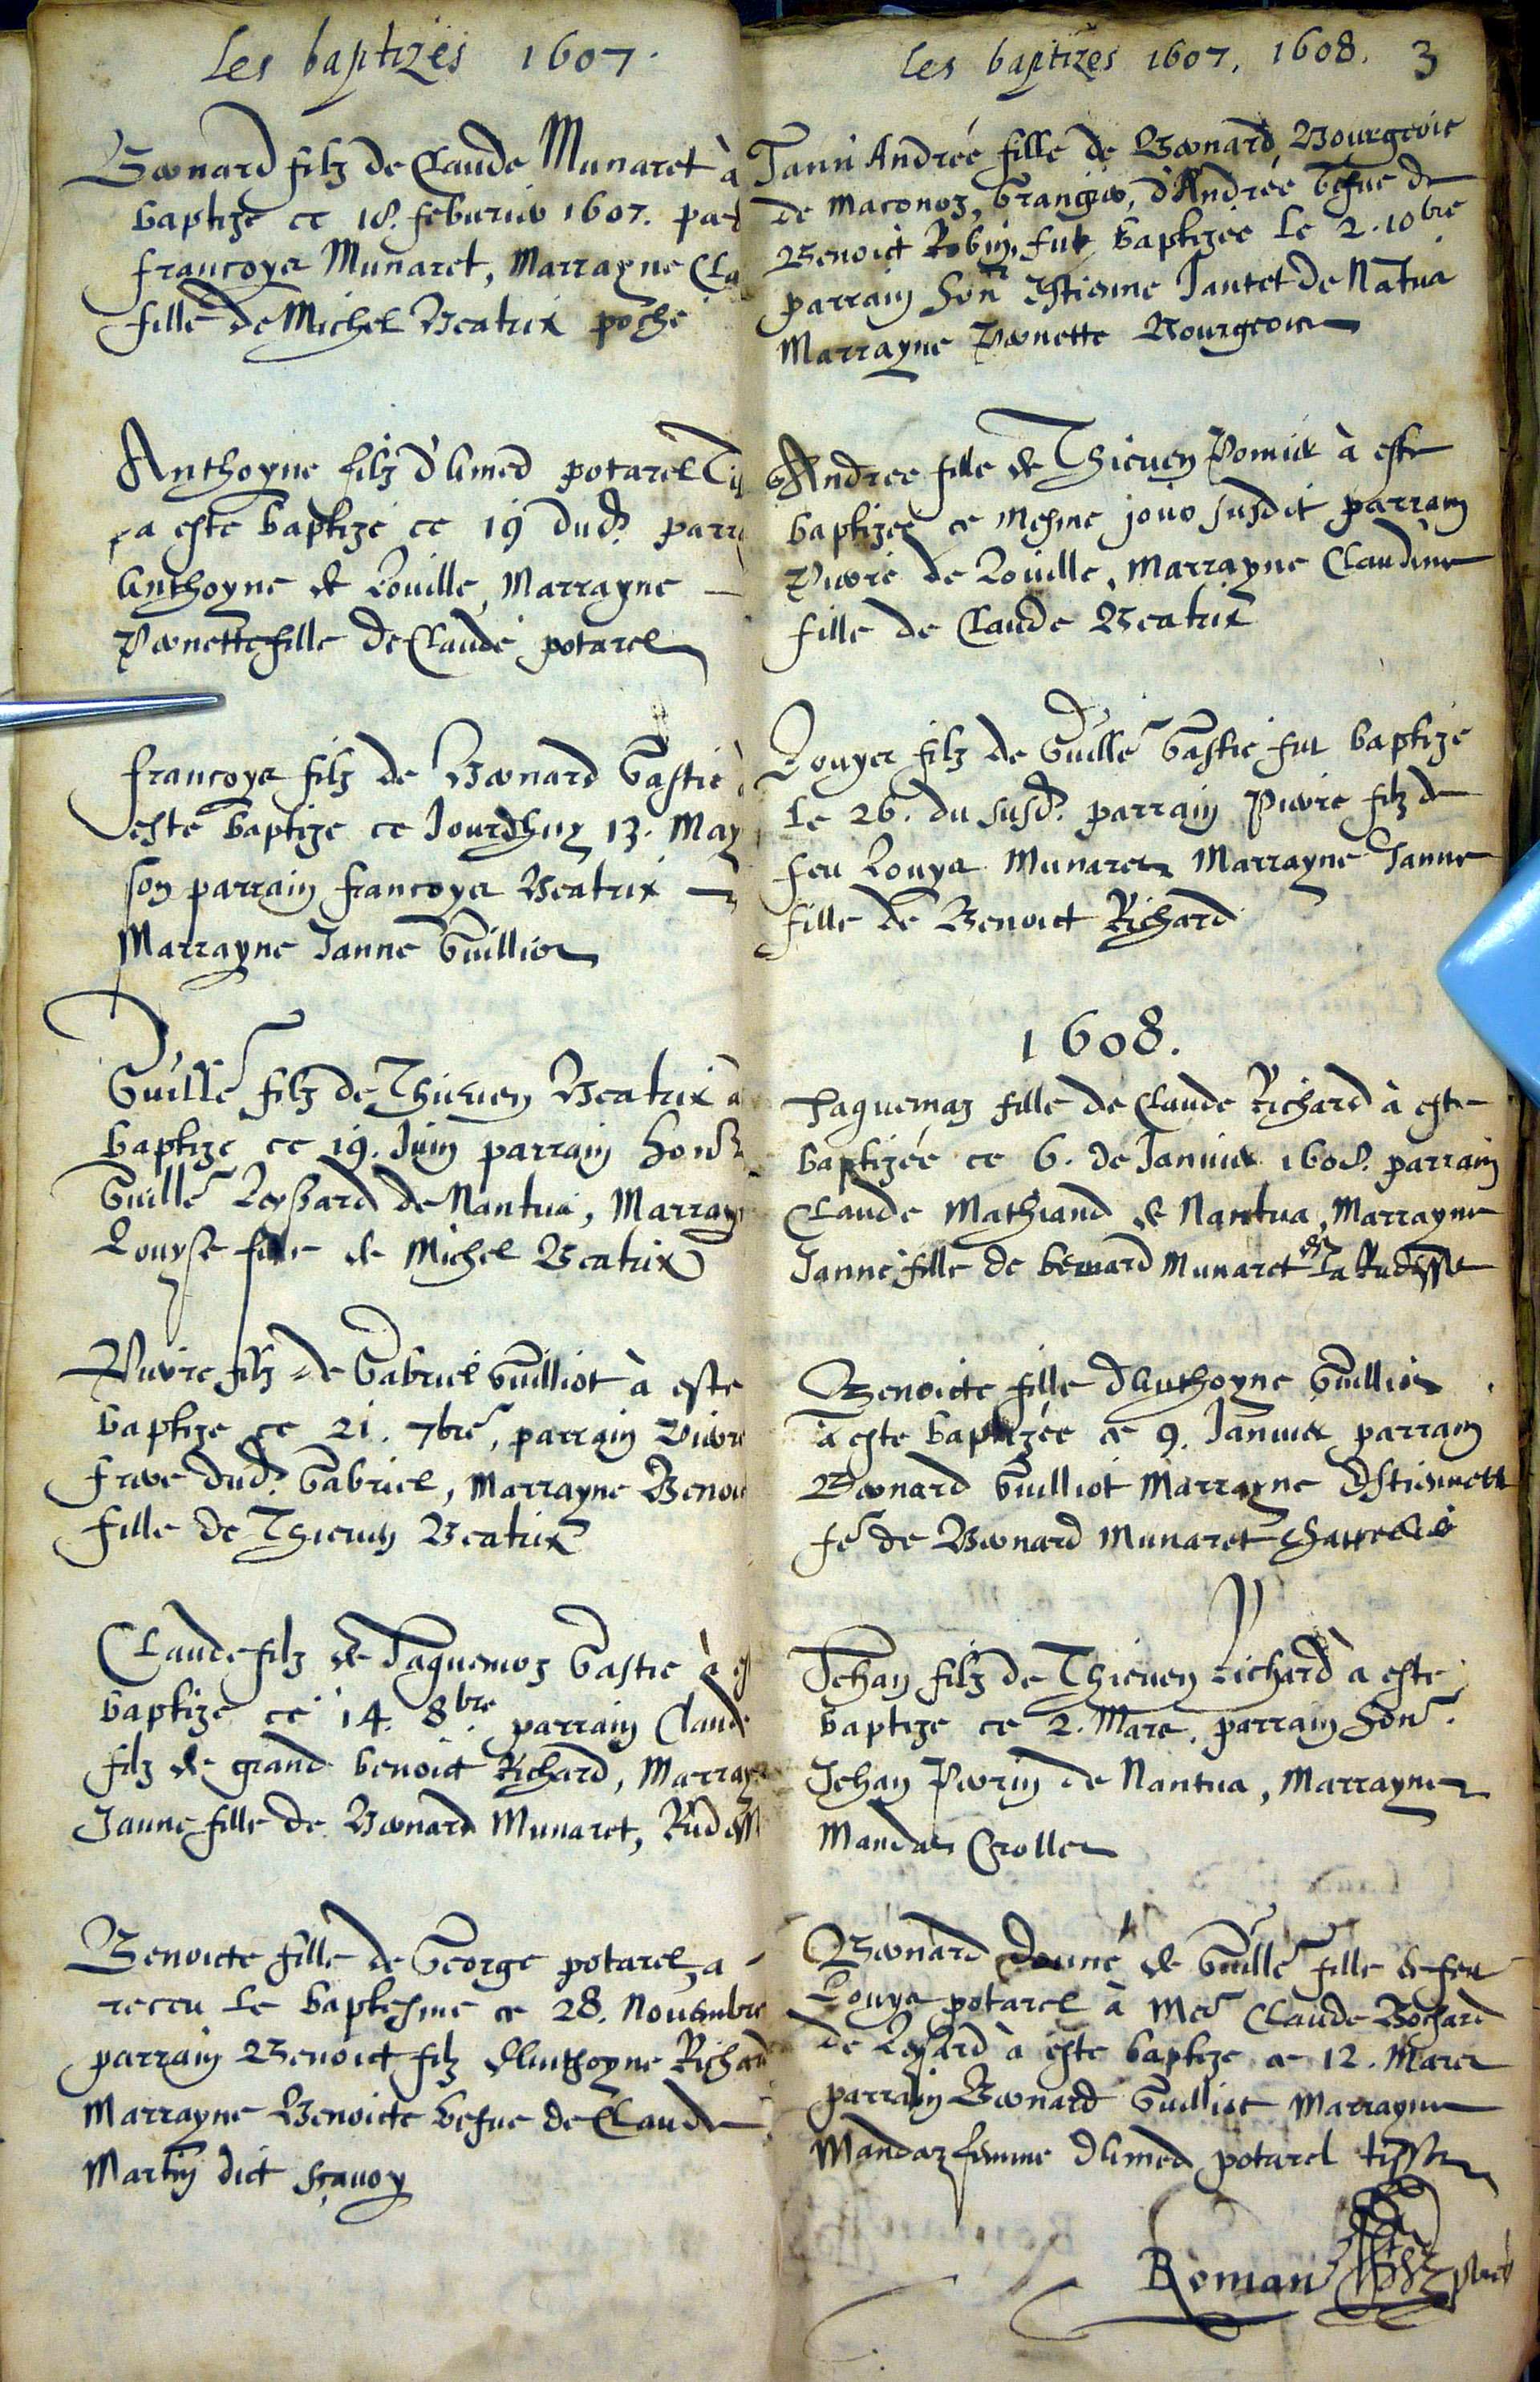 Les baptizés 1607.
Bernard filz de Claude Munaret à
baptizé ce 18. feburier 1607. par
francoys Munaret, Marrayne Cla
fille de Michel Beatrix poché
Anthoyne filz d'Amed potarel Ti
a esté baptizé ce 19 dud. parr
Anthoyne de Loville, Marrayne
Pernette fille de Claude potarel
francoys filz de Bernard Gastie à
esté baptizé ce Jourdhuy 13. May
son parrain francoys Beatrix
Marrayne Janne Guilliot
Guille filz de Thieven Beatrix a
baptizé ce 19. Juin parrain hon
Guille de Nantua, Marrayn
Louyse de Michel Beatrix
Pierre filz de Gabriel Guilliot à esté
baptizé ce 21. 7bre, parrain Pierre
frere dud. Gabriel, Marrayne Benoi
fille de Thieven Beatrix
Claude filz de Jaquemoz Gastie à es
baptizé ce 14. 8bre parrain Claude
filz de grand benoict Richard, Marray
Janne fille de Bernard Munaret, Rudess
Benoicte fille de George potarel, a
receu le baptesme ce 28. Novembre
parrain Benoict filz d'Anthoyne Richard
Marrayne Benoicte vefue de Claude
Martin dict sçavoy
Les baptizés 1607, 1608. 3
Andreé fille de Bernard Bourgeois
de Maconoz, Grangier, d'Andrée vefue de
Benoict Robin, fut baptizée le 2. 10bre
parrain hon Estienne Jantet de Natua
Marrayne Pernette Bourgeois
Andree fille de Thieven Pomier à esté
baptizée ce mesme jour susdit parrain
Pierre de Loville, Marrayne Claudine
fille de Claude Beatrix
Louys filz de Guille Gastie fut baptizé
le 26. du susd. parrain Pierre filz de
feu Louys Munaret Marrayne Janne
fille de Benoict Richard
1608.
Jaquemaz fille de Claude Richard à esté
baptizée ce 6. de Janvier 1608. parrain
Claude Mathiand de Nantua, Marrayne
Janne fille de bernard Munaret La Rudesse
Benoicte fille d'Anthoyne Guilliot
à esté baptizée ce 9. Janvier parrain
Bernard Guilliot Marrayne Estiennette
fe de Bernard Munaret
Jehan filz de Thieven richard à esté
baptizé ce 2. Mars. parrain hon.
Jehan Perrin de Nantua, Marrayne
Mandaz Crollet
Bernard donné de Guille fille de feu
Louys potarel à Me Claude Bochard
de à esté baptizé ce 12. Mars
parrain Bernard Guilliot Marrayne
Mandaz femme d'Amed potarel tissot
Roman